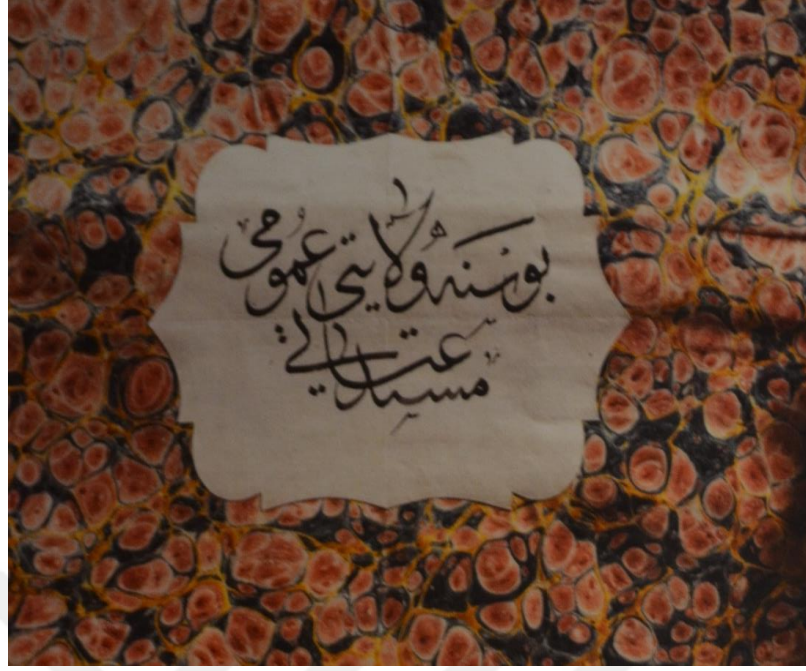 بوسنه ولايتى عمومى
مستدعياتى